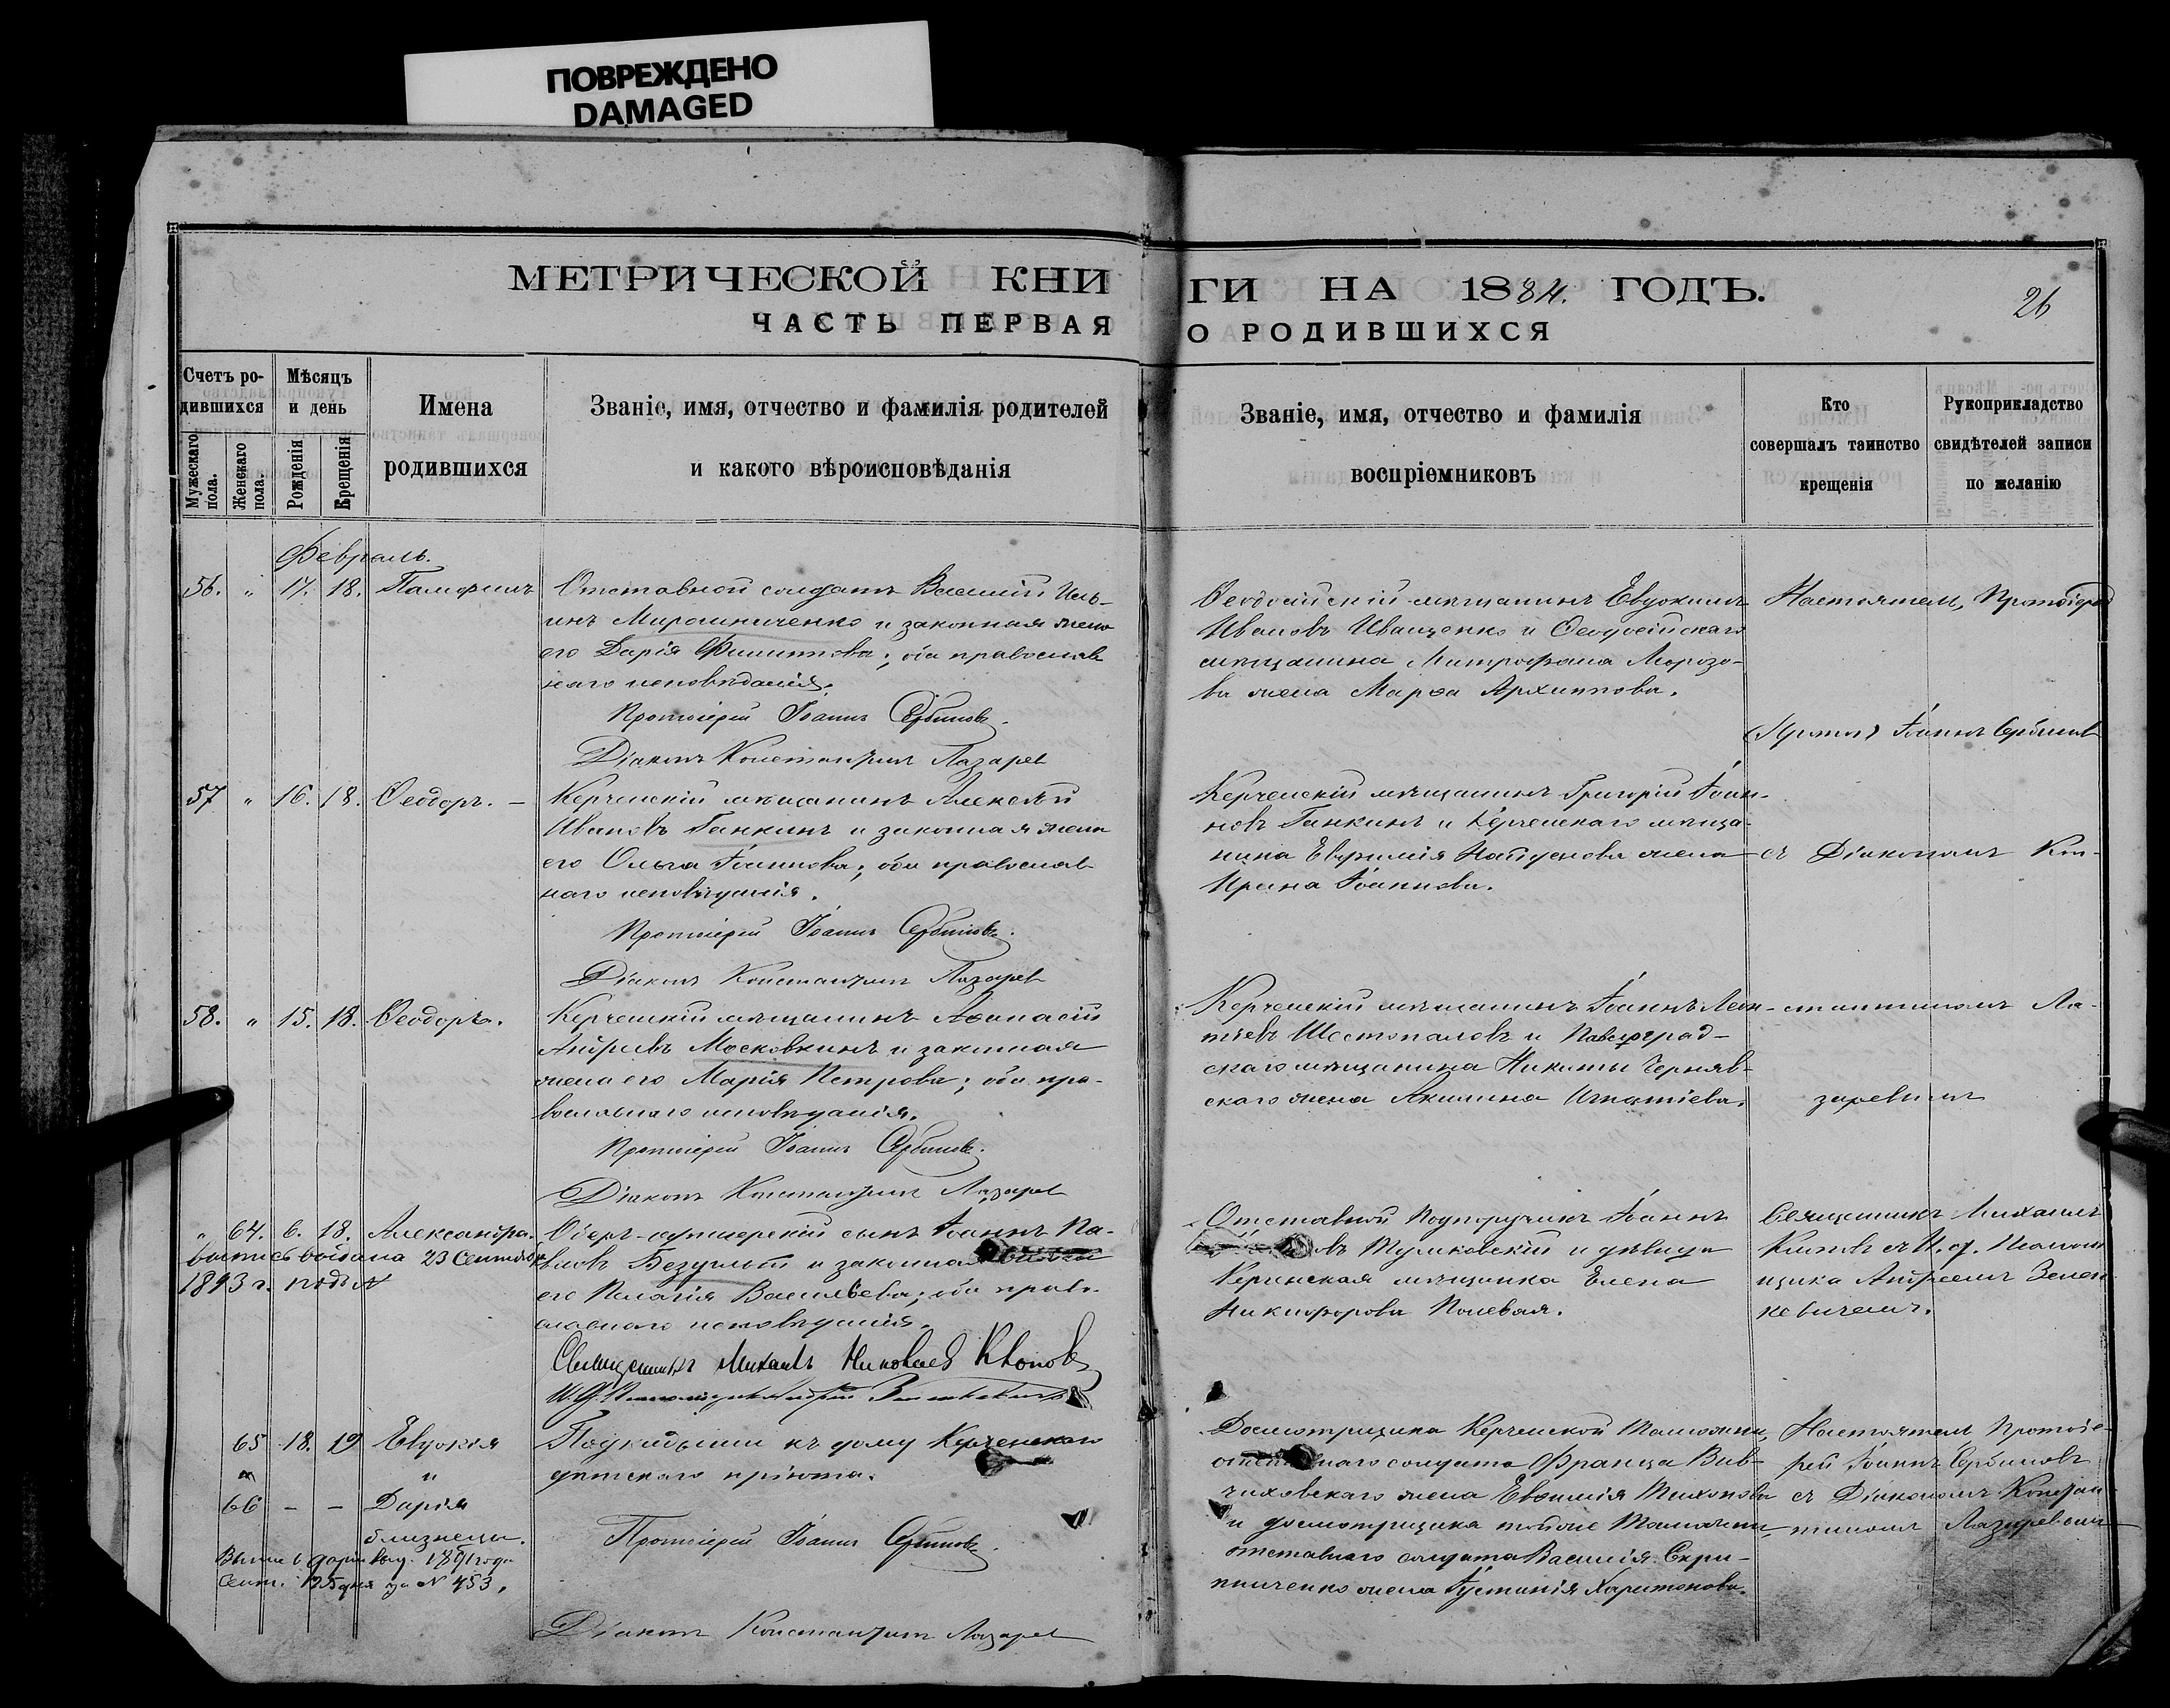 ПОВРЕЖДЕНО
DAMAGED
МЕТРИЧЕСКОЙ КНИ
ГИ НА 1884. ГОДЪ.
26
ЧАСТЬ ПЕРВАЯ
О РОДИВШИХСЯ
Счетъ ро-
дившихся
Мужескаго пола.
Женскаго пола.
Мѣсяцъ
и день
Рожденія
Крещенія
Имена
родившихся
Званіе, имя, отчество и фамилія родителей
и какого вѣроисповѣданія
Званіе, имя, отчество и фамилія
воспріемниковъ
Кто
совершалъ таинство
крещенія
Рукоприкладство
свидѣтелей записи
по желанію
Февраль.
56. " 17. 18. Памфилъ
Отставной солдатъ Василій Иль-
инъ Мирошниченко и законная жена
его Дарія Филиппова; оба православ
наго исповѣданія.
Протоіерей Іоаннъ Сербиновъ.
Діаконъ Константинъ Лазарев
Ѳеодосійскій мѣщанинъ Евдокимъ
Ивановъ Иващенко и Ѳеодосійскаго
мѣщанина Митрофана Морозо-
ва жена Марѳа Архиппова.
Настоятель, Протоіерей
Іоаннъ Сербинов
57 " 16. 18. Ѳеодоръ. –
Керченскій мѣщанинъ Алексѣй
Ивановъ Ганкинъ и законная жена
его Ольга Іоаннова; оба православ
наго исповѣданія.
Протоіерей Іоаннъ Сербиновъ.
Діаконъ Константинъ Лазарев
Керченскій мѣщанинъ Григорій Іоан-
новъ Ганкинъ и Керченскаго мѣща-
нина Евфимія Найденова жена
Ирина Іоаннова.
съ Діакономъ Кон-
58. " 15. 18. Ѳеодоръ.
Керченскій мѣщанинъ Аѳанасій
Андреевъ Московкинъ и законная
жена его Марія Петрова; оба пра-
вославнаго исповѣданія.
Протоіерей Іоаннъ Сербиновъ.
Діаконъ Константинъ Лазарев
Керченскій мѣщанинъ Іоаннъ Леон-
тіевъ Шестопаловъ и Павлоград-
скаго мѣщанина Никиты Черняв-
скаго жена Акилина Игнатіева.
стантиномъ Ла-
заревымъ
" 64. 6. 18. Александра.
выдана 23 Сентября
1893 г. подъ №
Оберъ-офицерскій сынъ Іоаннъ Па-
вловъ Безуглый и законная
его Пелагія Васильева; оба право-
славнаго исповѣданія.
Священникъ Михаилъ Николаев Клопов
Отставной Подпоручикъ Іоаннъ
овъ Тушковскій и дѣвица
Керченская мѣщанка Елена
Никифорова Полевая.
Священникъ Михаилъ
Клоповъ съ И. д. Псалом
щика Андреемъ Зелен
кевичемъ.
65 18. 19 Евдокія
"
66 – – Дарія
близнецы.
1891 года
Сент. 25 дня за № 453.
Подкидыши къ дому Керченскаго
дѣтскаго пріюта.
Протоіерей Іоаннъ Сербиновъ.
Діаконъ Константинъ Лазарев
Досмотрщика Керченской Таможни,
отставнаго солдата Франца Вив-
чиховскаго жена Евѳимія Тихонова
и досмотрщика тойже Таможни
отставнаго солдата Василія Скри-
пниченко жена Іустинія Харитонова.
Настоятель Протоіе-
рей Іоаннъ Сербиновъ
съ Діакономъ Констан-
тиномъ Лазаревымъ